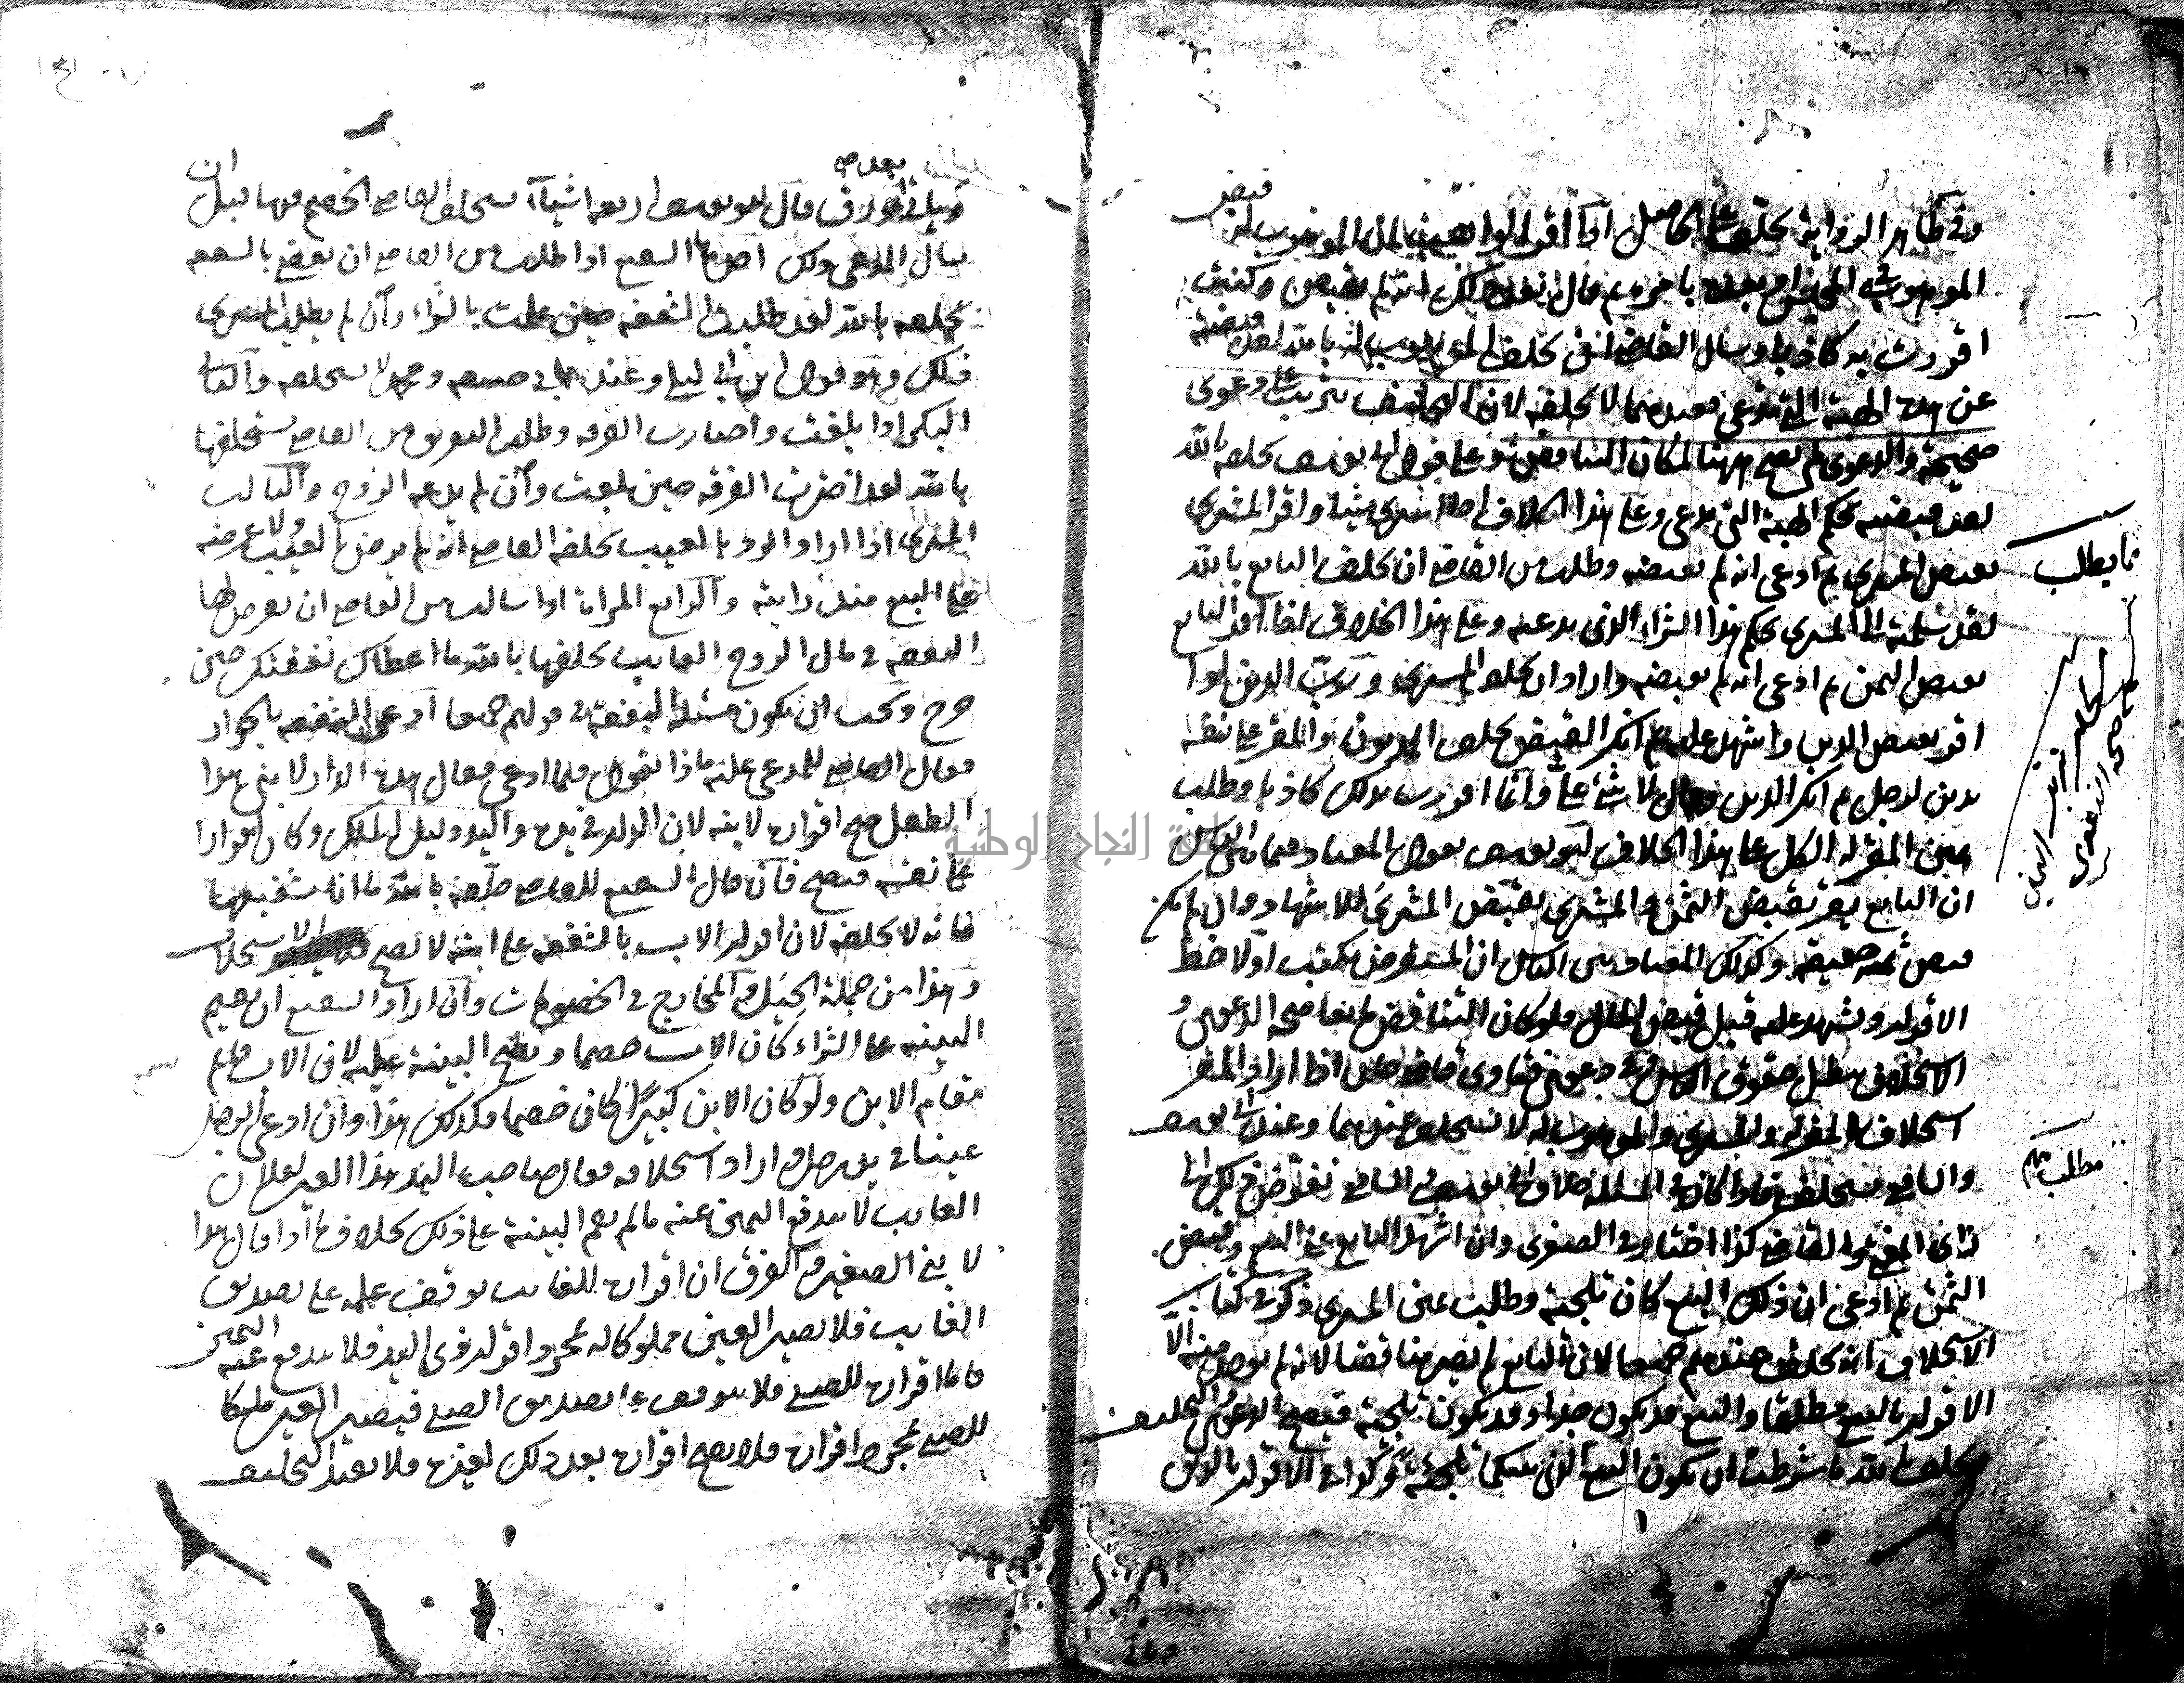 وفي ظاهر الرواية يحلف على الحاصل اذا اقر الواهب ان الموهوب له قبض
الموهوب في المجلس او بعده بامره ثم قال لم تقبض وكنت
اقررت به كاذبا وسال القاضي ان يحلف الموهوب له بالله لقد قبضته
عن هذه الهبة التي تدعي فعندهما لا يحلفه لان التحليف يترتب على دعوى
صحيحة والدعوى لم تصح ههنا لمكان التناقض وعلى قول ابي يوسف يحلفه بالله
لقد قبضته بحكم الهبة التي تدعي وعلى هذا الخلاف اذا اشترى شيئا واقر المشتري
بقبض المشتري ثم ادعى انه لم يقبضه وطلب من القاضي ان يحلف البايع بالله
لقد سلمته الى المشتري بحكم هذا الشراء الذي يدعيه وعلى هذا الخلاف اذا اقر البايع
بقبض الثمن ثم ادعى انه لم يقبضه واراد ان يحلف المشتري ورب الدين اذا
اقر بقبض الدين واشهد عليه ثم انكر القبض يحلف المديون والمقر على نفسه
بدين لرجل ثم انكر الدين وقال لا شيء علي وانما اقررت بذلك كاذبا وطلب
يمين المقر له الكل على هذا الخلاف ابو يوسف يقول المعتاد فيما بين الناس
ان البايع يقر بقبض الثمن والمشتري بقبض المشترى للاشهاد وان لم يكن
قبض ثمه حقيقة وكذلك المعتاد بين الناس ان المستقرض يكتب اولا خط
الاقرار ويشهد عليه قبل قبض المال فلو كان التناقض مانعا صحة الدعوى و
الاستحلاف يبطل حقوق الناس وفي دعوى فتاوى قاضي خان اذا اراد المقر
استحلاف المقر له والمشتري والموهوب له لا يستحلف عندهما وعند ابي يوسف
والشافعي يستحلف فاذا كان في المسئلة خلاف ابي يوسف والشافعي يفوض ذلك الى
راى المفتي والقاضي كذا اختار في الصغرى وان اشهد البايع على البيع وقبض
الثمن ثم ادعى ان ذلك البيع كان تلجئة وطلب يمين المشتري ذكر في كتاب
الاستحلاف انه يحلف عندهم جميعا لان البايع لم يصر مناقضا لانه لم يوجد منه الا
الاقرار بالبيع مطلقا والبيع قد يكون جدا وقد يكون تلجئة فيصح الدعوى والتحليف
ويحلف بالله ما شرطت ان يكون البيع الذي بينكما تلجئة وكذا في الاقرار بالدين
مما يطلب
مطلب مهم
وفي اخره بعده ورق قال ابو يوسف اربعة اشيآء يستحلف القاضي الخصم فيها قبل ان
يسال المدعي ذلك احدها الشفيع اذا طلب من القاضي ان يقضي بالشفعة
يحلفه بالله لقد طلبت الشفعة حين علمت بالشراء وان لم يطلب المشتري
ذلك وهو قول ابن ابي ليلى وعند ابي حنيفة ومحمد لا يستحلفه والثاني
البكر اذا بلغت واختارت الفرقة وطلب التفريق من القاضي يستحلفها
بالله لقد اخترت الفرقة حين بلغت وان لم يدعه الزوج والثالث
المشتري اذا اراد الرد بالعيب يحلفه القاضي انه لم يرض بالعيب ولا عرضه
على البيع منذ رايته والرابع المراة اذا سالت من القاضي ان يفرض لها
النفقة في مال الزوج الغايب يحلفها بالله ما اعطاك نفقتك حين
خرج ويجب ان يكون مسئلة النفقة في قولهم جميعا ادعى الشفعة بالجوار
فقال القاضي للمدعى عليه ماذا تقول فيما ادعى فقال هذه الدار لابني هذا
الطفل صح اقراره لابنه لان الدار في يده واليد دليل الملك وكان اقرارا
على نفسه فيصح فان قال الشفيع للقاضي حلفه بالله ما انا شفيعها
فانه لا يحلفه لان اقرار الاب بالشفعة على ابنه لا تصح الاستحلاف
وهذا من جملة الحيل والمخارج في الخصومات وان اراد الشفيع ان يقيم
البينة على الشراء كان الاب خصما وتصح البينة عليه لان الاب قايم
مقام الابن ولو كان الابن كبيرا كان خصما فكذلك هذا وان ادعى رجل
عينا في يد رجل واراد استحلافه فقال صاحب اليد هذا العين لفلان
الغايب لا يندفع اليمين عنه ما لم يقم البينة على ذلك بخلاف ما اذا قال هذا
لابني الصغير والفرق ان اقراره للغايب توقف عليه على تصديق
الغايب فلا تصير العين مملوكا له بمجرد اقرار ذي اليد فلا يندفع عنه اليمين
فاما اقراره للصبي فلا يتوقف على تصديق الصبي فيصير العين ملكا
للصبي بمجرد اقراره فلا يصح اقراره بعد ذلك لغيره فلا يفيد التحليف
جامعة النجاح الوطنية